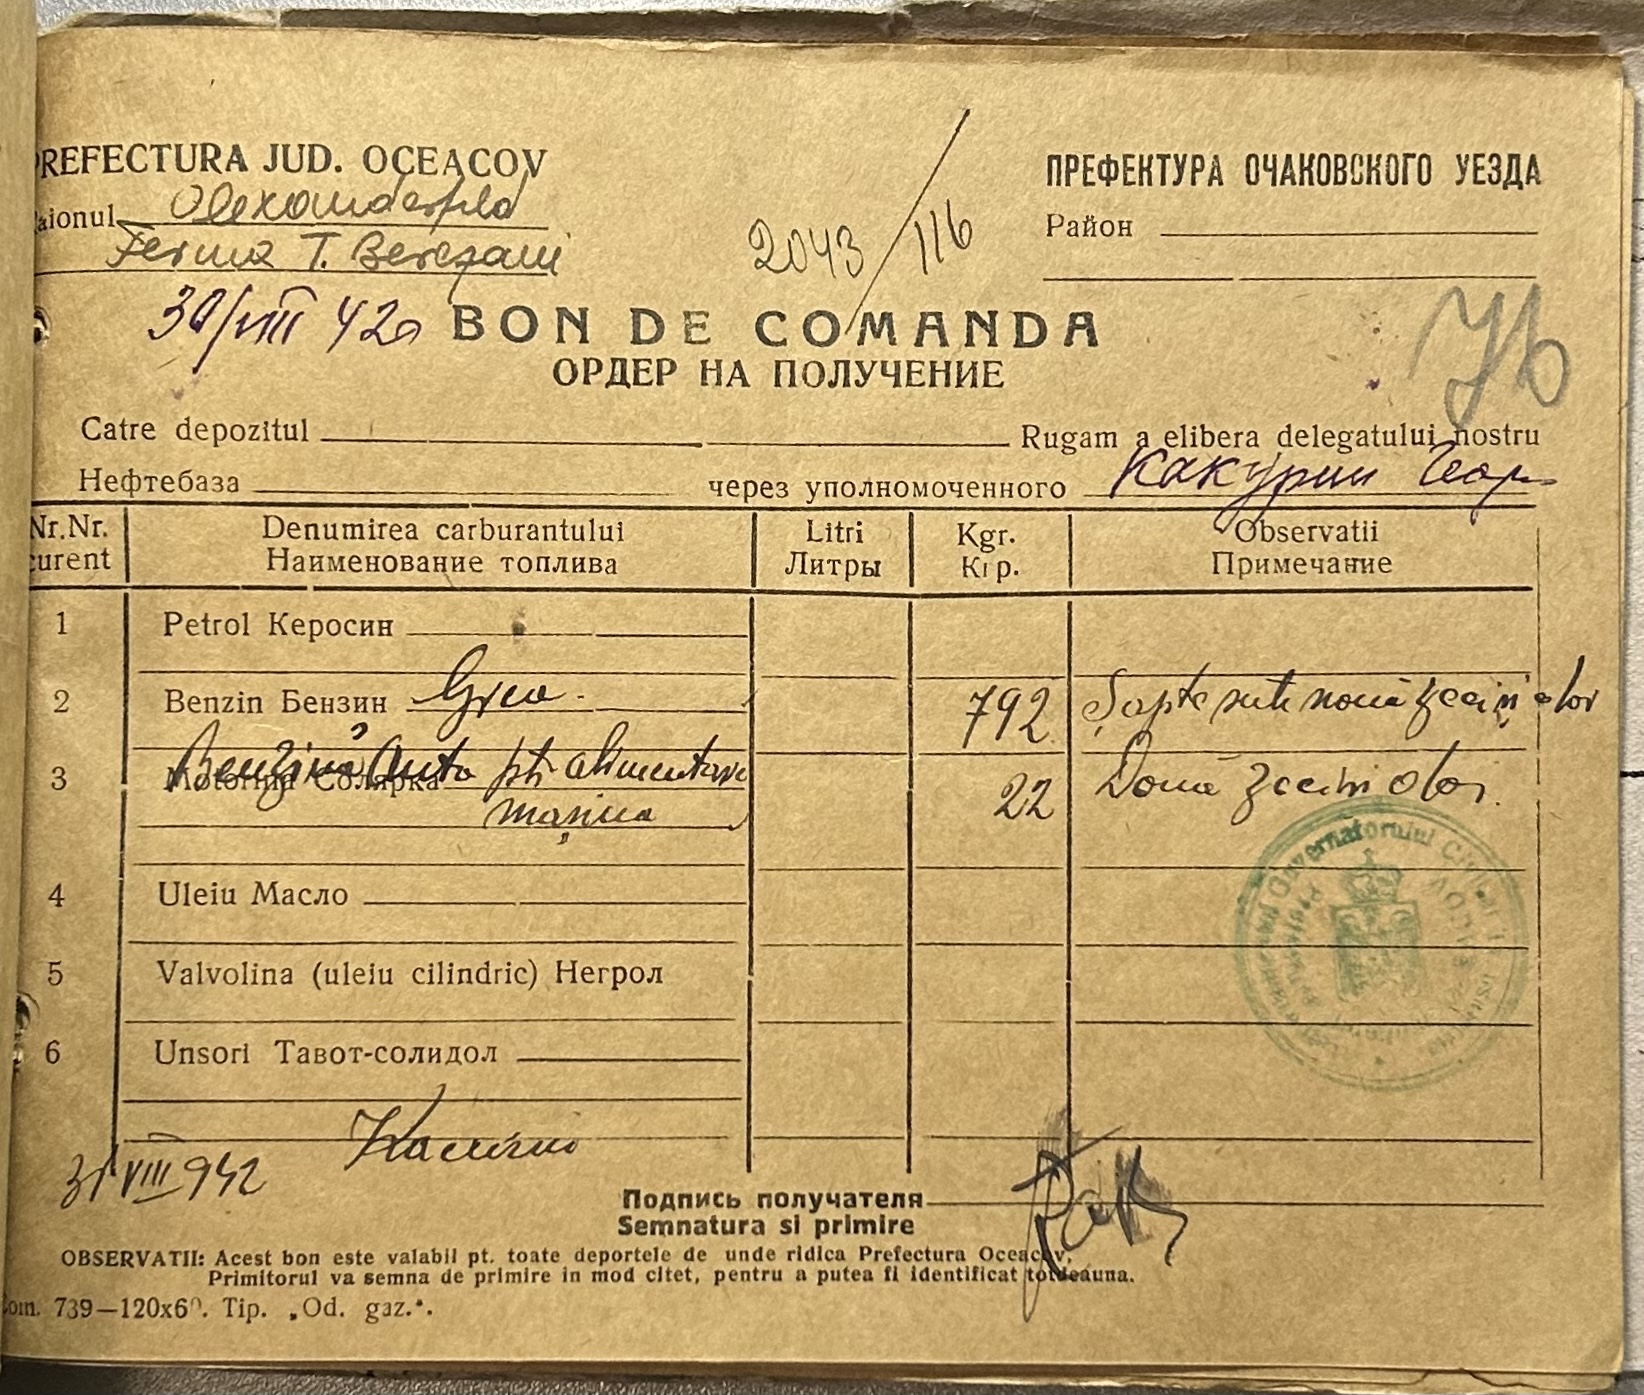 PREFECTURA JUD. OCEACOV
ПРЕФЕКТУРА ОЧАКОВСКОГО УЕЗДА
Raionul Alexanderfeld
Район
Ferma T. Berezani
2043/116
30/VIII 42
76
BON DE COMANDA
ОРДЕР НА ПОЛУЧЕНИЕ
Catre depozitul Rugam a elibera delegatului nostru
Нефтебаза через уполномоченного Какурин Геор
Nr.Nr. curent
Denumirea carburantului
Наименование топлива
Litri
Литры
Kgr.
Кгр.
Observatii
Примечание
1 Petrol Керосин
2 Benzin Бензин Grea 792 Șapte sute nouă zeci și doi
3 Motorina Солярка Benzină Auto pt. alimentare 22 Două zeci și doi
mașina
4 Uleiu Масло
5 Valvolina (uleiu cilindric) Негрол
6 Unsori Тавот-солидол
31 VIII 942
Подпись получателя
Semnatura si primire
OBSERVATII: Acest bon este valabil pt. toate deportele de unde ridica Prefectura Oceacov,
Primitorul va semna de primire in mod citet, pentru a putea fi identificat totdeauna.
Com. 739—120x60. Tip. „Od. gaz.".